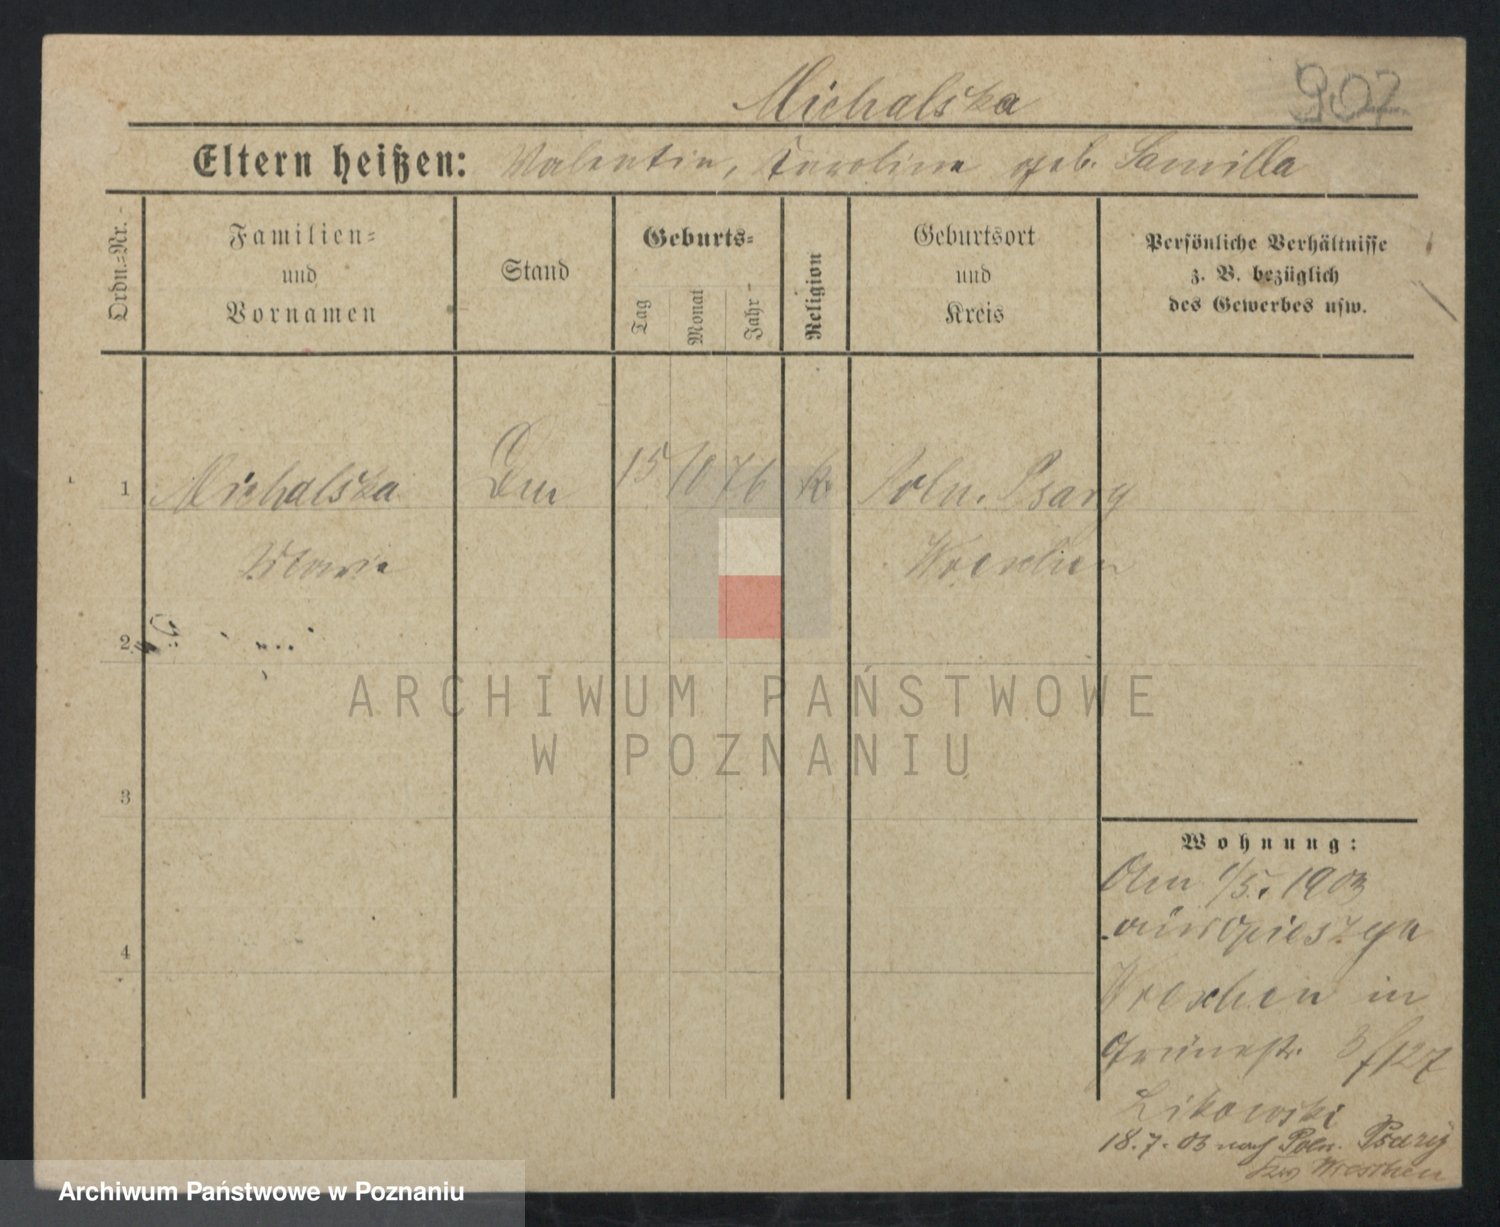 Michalska
907
Eltern heißen: Valentin, Caroline geb. Samilla
Ordn.-Nr.
Familien-
und
Vornamen
Stand
Geburts-
Tag
Monat
Jahr
Religion
Geburtsort
und
Kreis
Persönliche Verhältnisse
z. B. bezüglich
des Gewerbes usw.
1 Michalska 15 10 76 k. Poln. Psary
Marie Wreschen
2
3
4
ARCHIWUM PAŃSTWOWE
W POZNANIU
Wohnung:
Am 1/5. 1903
aus Opieszyn
Wreschen in
Grünestr. 3
Likowski
18.7.03 nach Poln. Psary
Wreschen
Archiwum Państwowe w Poznaniu